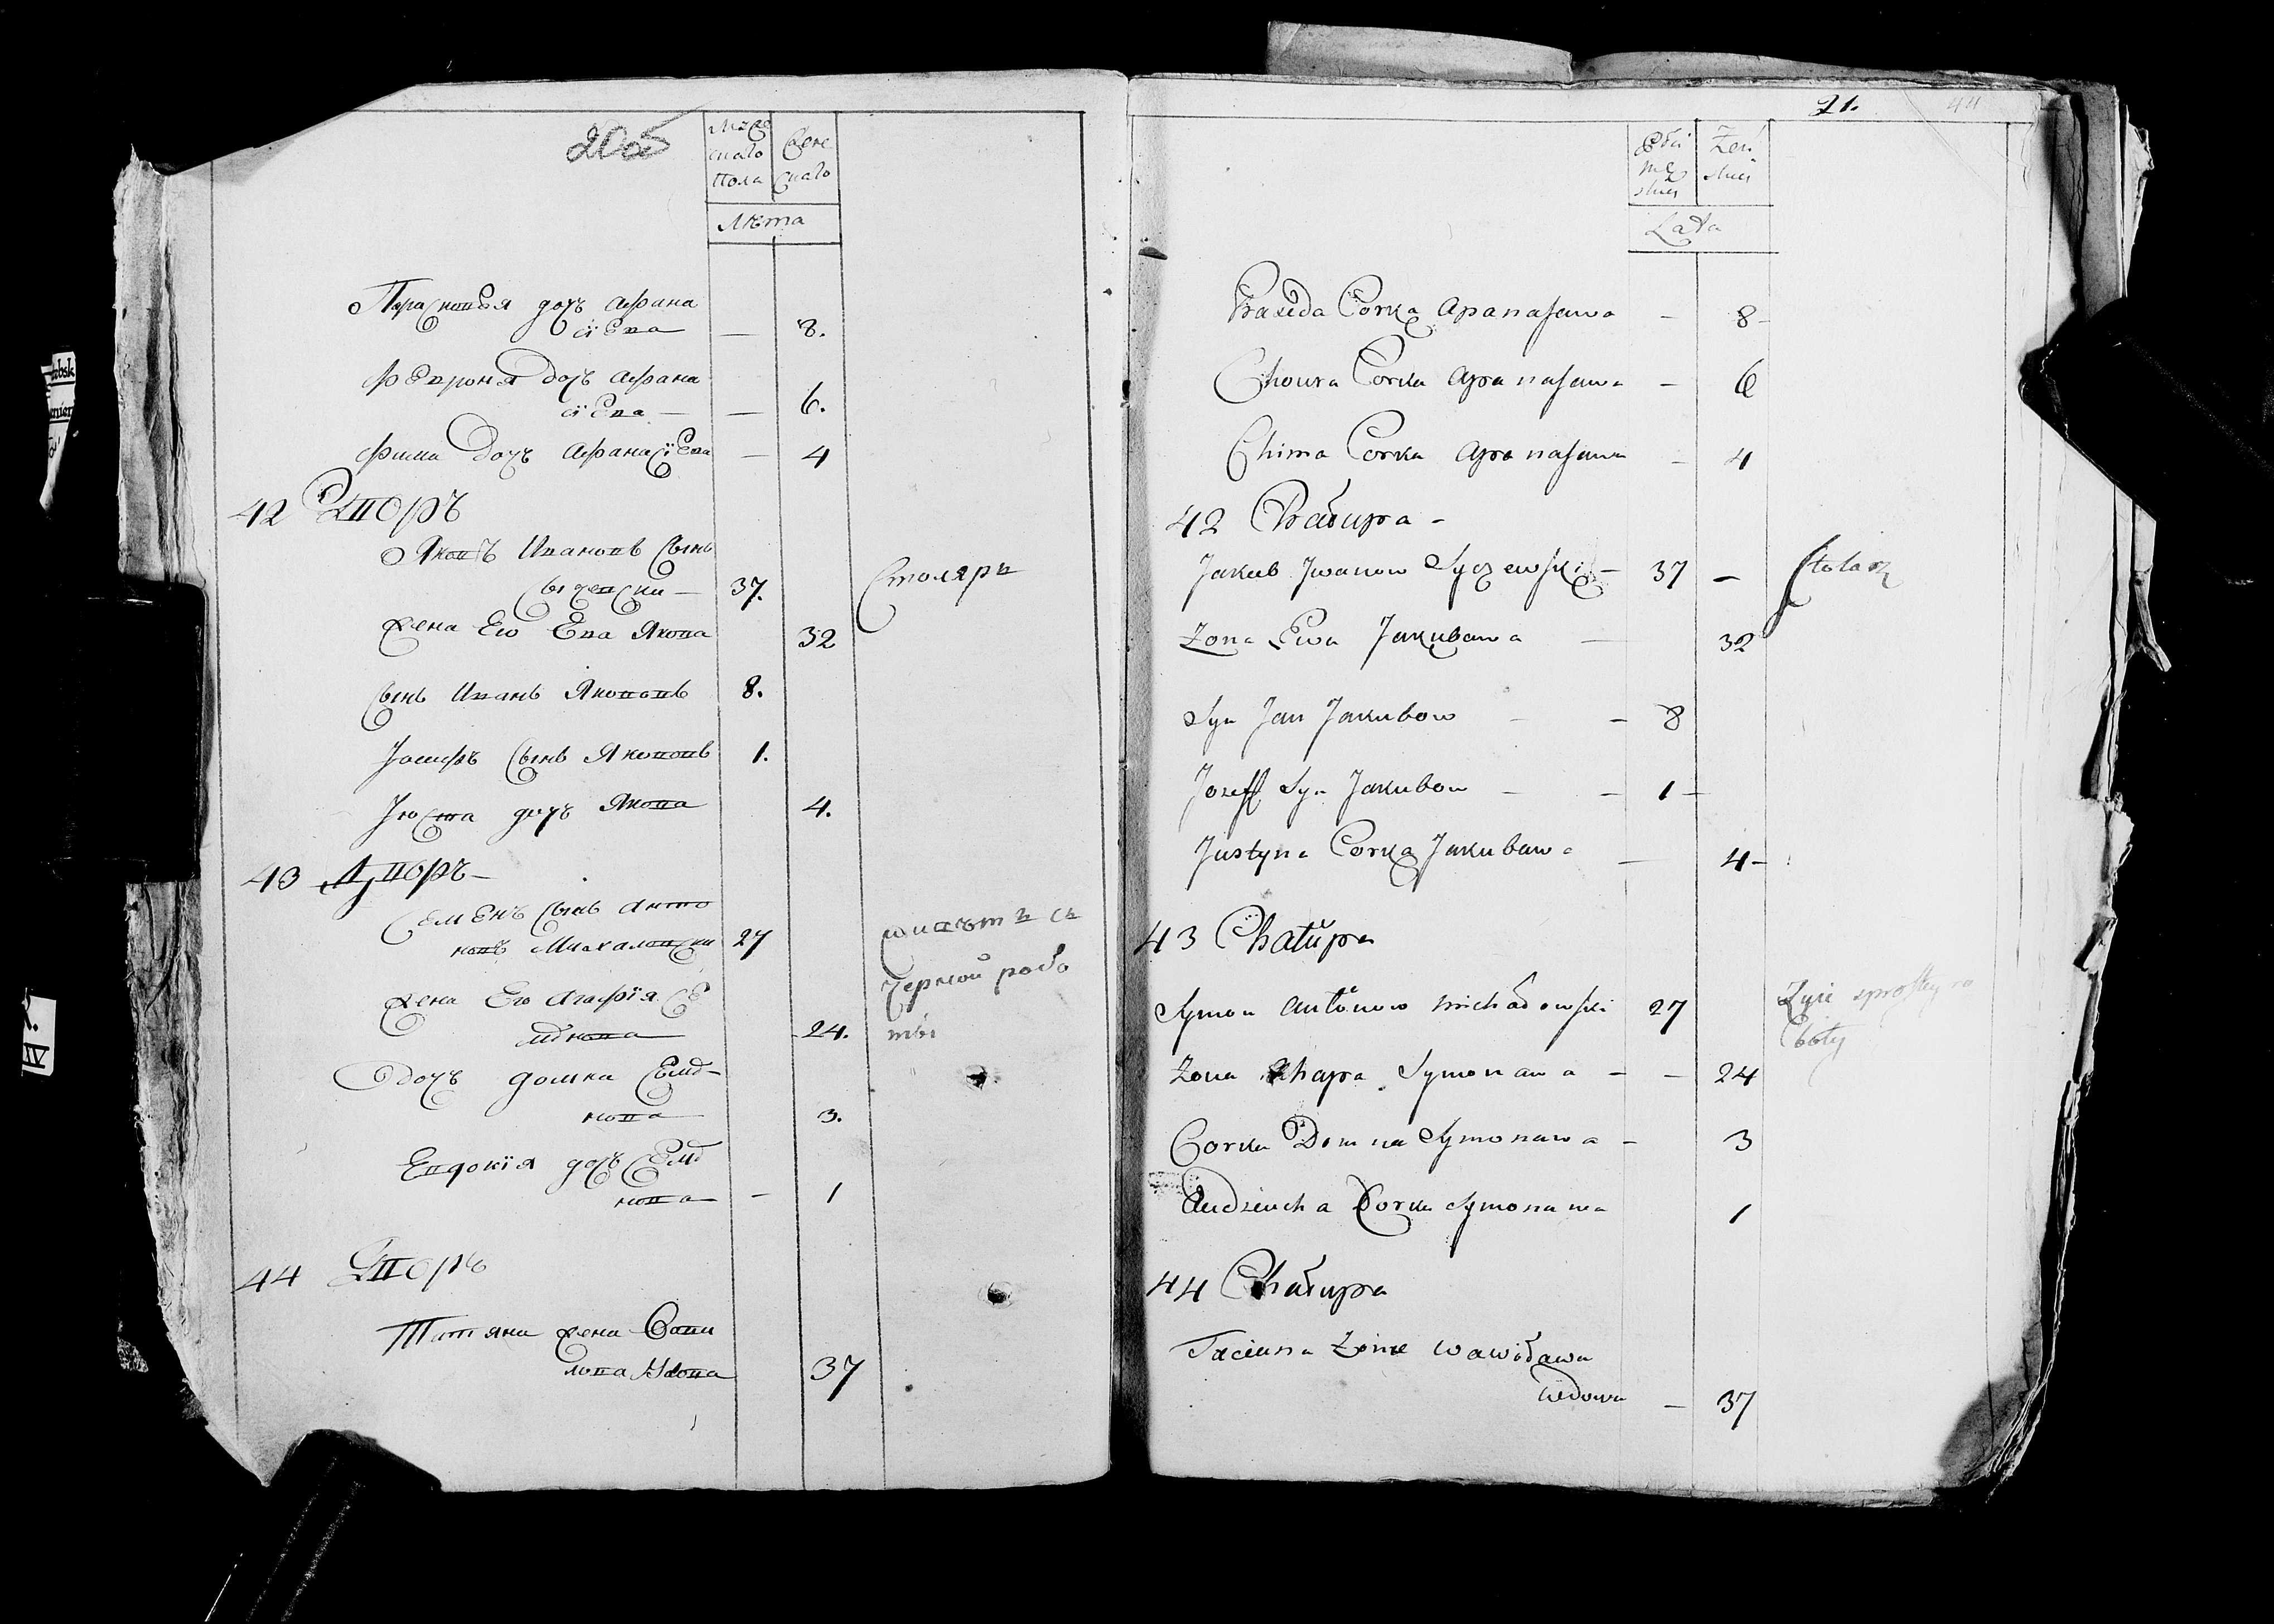 20об
Муже Жене
скаго скаго
Пола
Лѣта
Парасковья дочъ Афана
сіева — 8.
Февроня дочъ Афана
сіева — — 6.
Фима дочъ Афанасіева — 4
42 Дворъ
Яковъ Ивановъ сынъ
Сычевски — 37. Столяръ
Жена Его Ева Якова 32
Сынъ Иванъ Якововъ 8.
Іосифъ Сынъ Якововъ 1.
Іюста дочъ Якова 4.
43 Дворъ —
Семенъ Сынъ Анто
новъ Михаловски 27 живѣтъ съ
Черной робо
ты
Жена Его Агафія Се
мѣнова 24.
дочъ Домна Семѣ—
нова 3.
Евдокія дочъ Семѣ
нова — 1
44 Дворъ
Татяна жена Вави
лова Вдова 37
21. 44
Płci Żeń
Mę skiej
skiej
Lata
Praxeda Corka Apanasawa — 8 —
Chowra Corka Apanasawa — 6
Chima Corka Apanasawa — 4
42 Chałupa —
Jakub Jwanow Syczewski — 37 — Stolarz
Zona Ewa Jakubawa — 32
Syn Jan Jakubow — — 8
Jozeff Syn Jakubow — — 1 —
Justyna Corka Jakubawa — 4 —
43 Chałupa
Symon Antonow Michałowski 27 Zyie sprostey ro
boty
Zona Ahapa Symonawa — — 24
Corka Domna Symonawa — 3
Audziucha Corka Symonawa 1
44 Chałupa
Taciana Zona Wawiławа
wdowa — 37